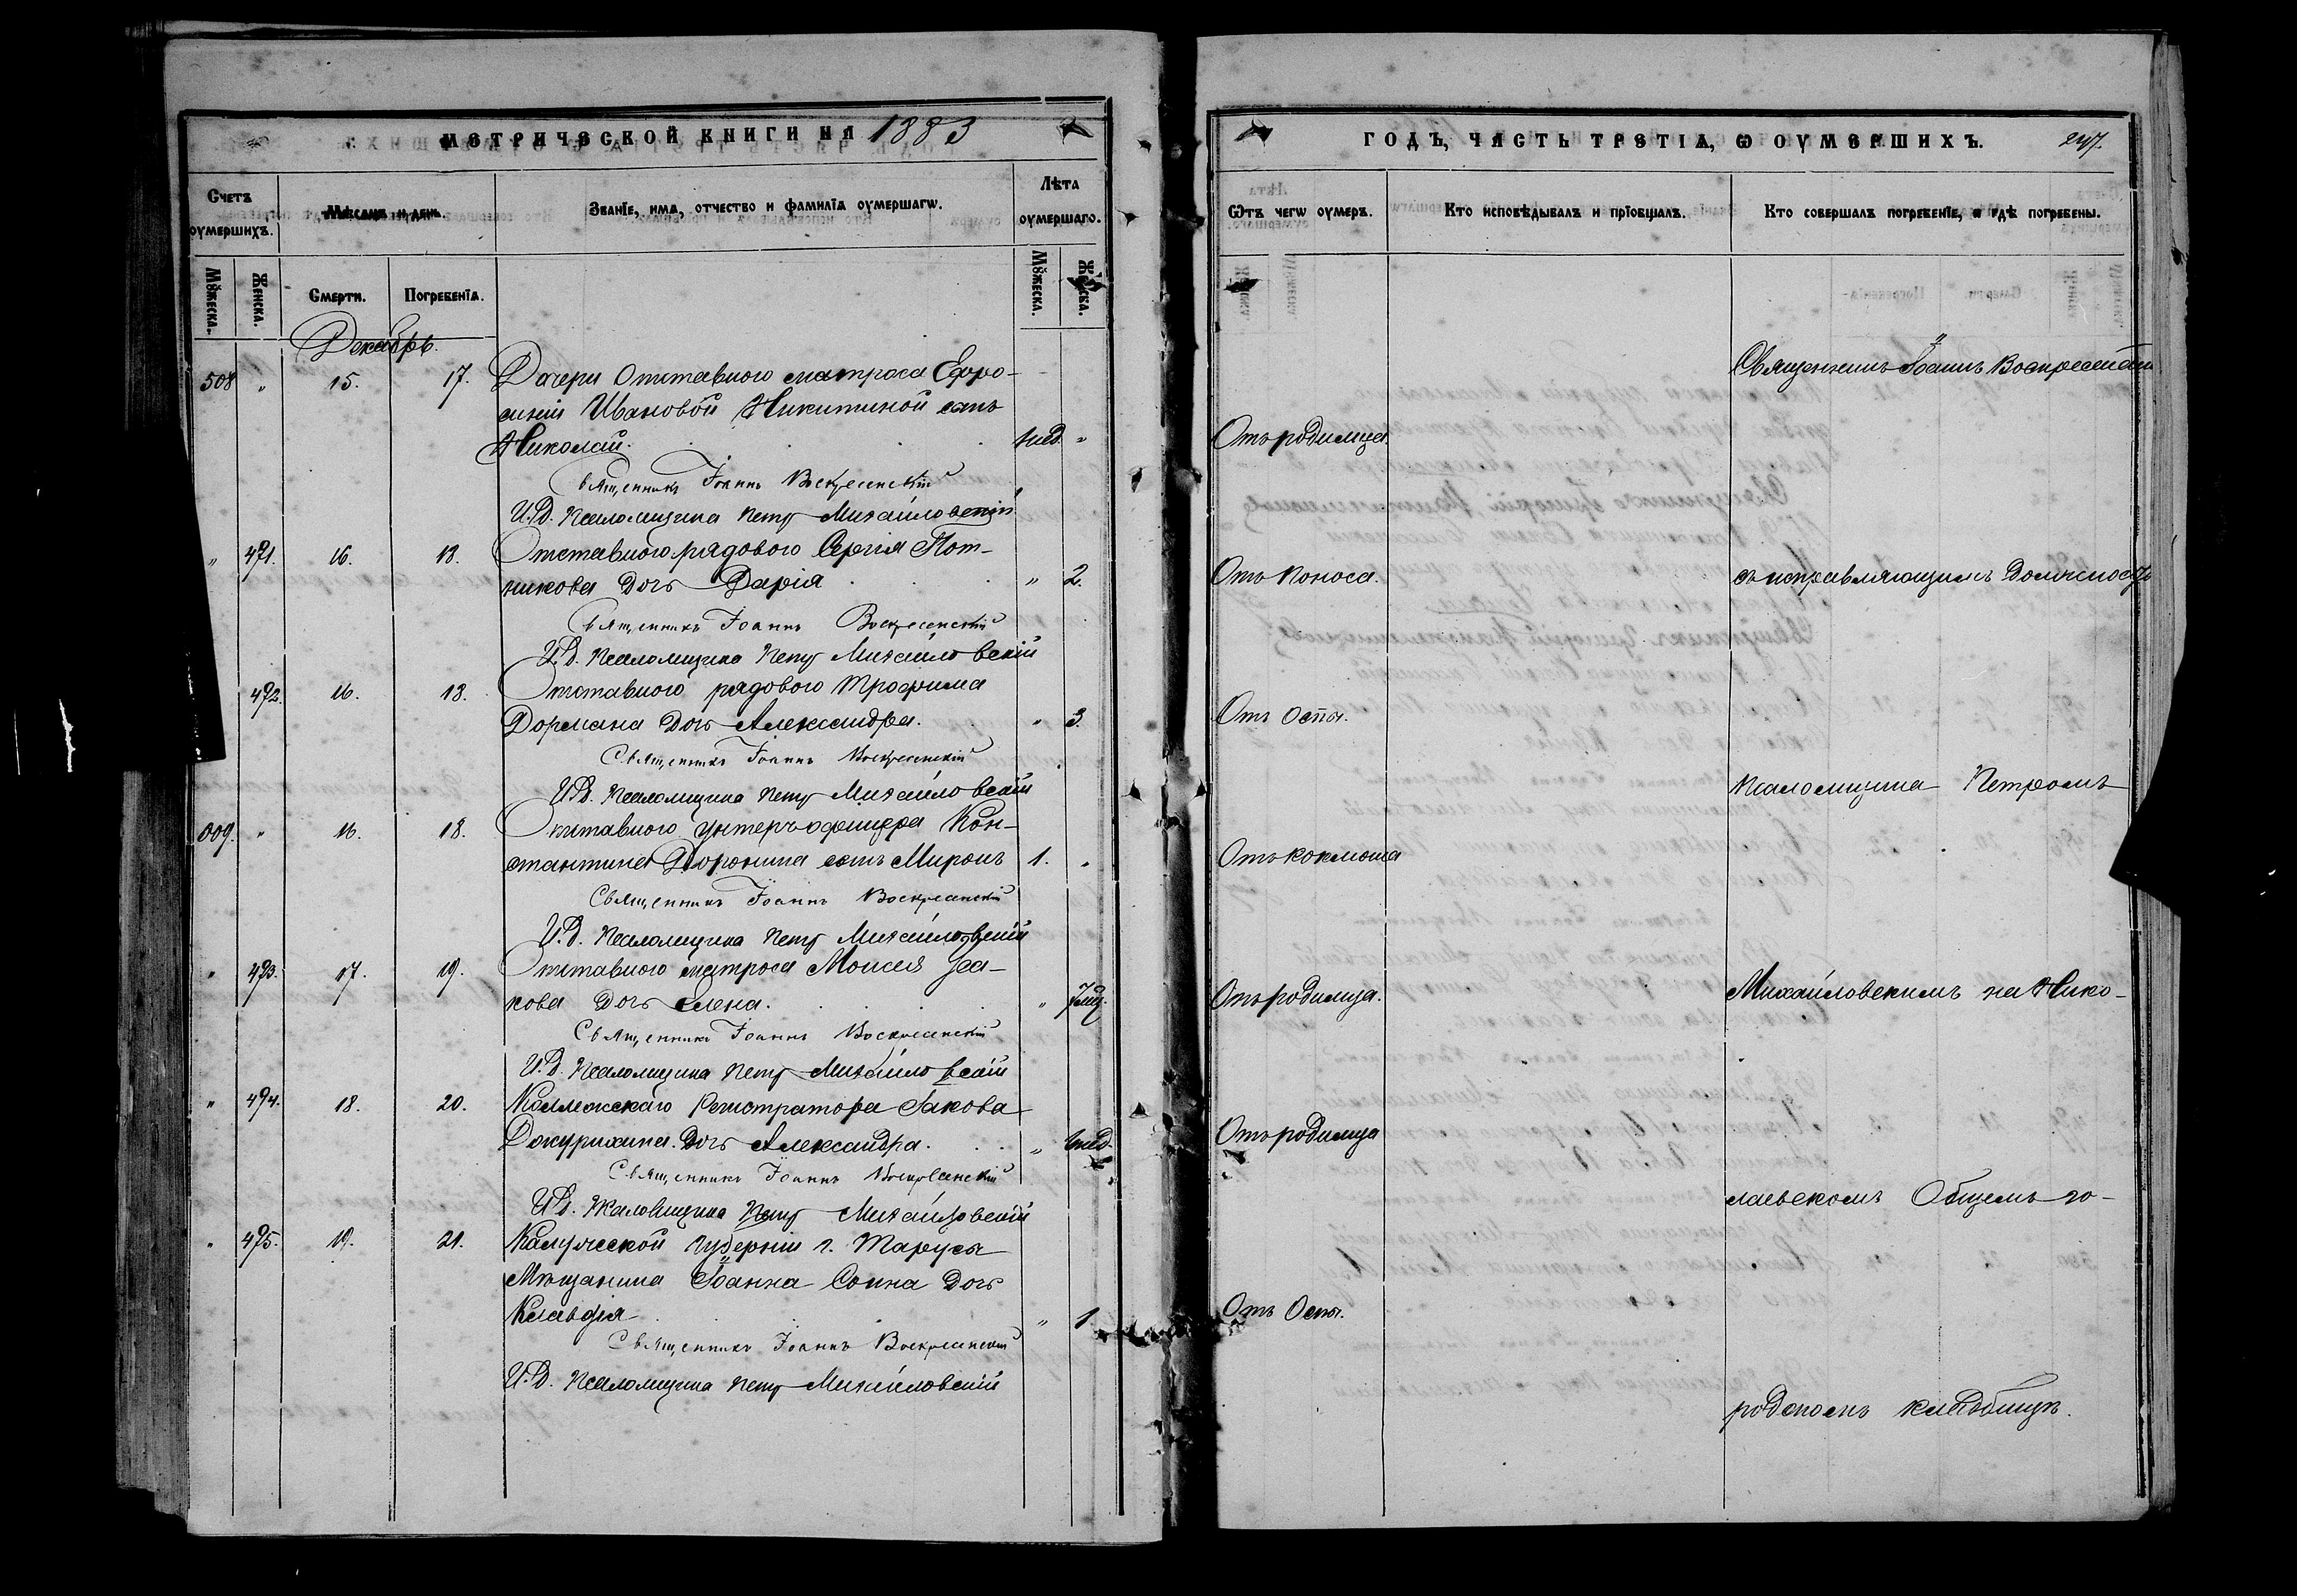 МЕТРИЧЕСКОЙ КНИГИ НА 1883
Счетъ оумершихъ.
Мѣсяцъ и день.
Званїе, имя, отчество и фамилїя оумершагѡ.
Лѣта оумершаго.
Мꙋжеска.
Женска.
Смерти.
Погребенїя.
Мꙋжеска.
Женска.
Декабрь.
508 " 15. 17. Дочери Отставного матроса Ефро-
синіи Ивановой Никитиной сынъ
Николай. 1 нед. "
Священникъ Іоаннъ Воскресенскій
И.Д. Псаломщика Петръ Михайловскій
" 471. 16. 18. Отставного рядового Сергія Пот-
никова дочь Дарія " 2.
Священникъ Іоаннъ Воскресенскій
И.Д. Псаломщика Петръ Михайловскій
472. 16. 18. Отставного рядового Трофима
Дормана дочь Александра. " 3.
Священникъ Іоаннъ Воскресенскій
И.Д. Псаломщика Петръ Михайловскій
509. " 16. 18. Отставного унтеръ-офицера Кон-
стантина Доронина сынъ Миронъ 1. "
Священникъ Іоаннъ Воскресенскій
И.Д. Псаломщика Петръ Михайловскій
" 473. 17. 19. Отставного матроса Моисея
кова дочь Елена. " 7 мц.
Священникъ Іоаннъ Воскресенскій
И.Д. Псаломщика Петръ Михайловскій
" 474. 18. 20. Коллежскаго Регистратора Іакова
дочь Александра. " нед.
Священникъ Іоаннъ Воскресенскій
И.Д. Псаломщика Петръ Михайловскій
" 475. 19. 21. Калужской губерніи г. Тарусы
Мѣщанина Іоанна Сонна дочь
Клавдія " 1
Священникъ Іоаннъ Воскресенскій
И.Д. Псаломщика Петръ Михайловскій
ГОДЪ, ЧАСТЬ ТРЕТІѦ, Ѡ ОУМЕРШИХЪ. 247.
Ѿтъ чегѡ оумеръ.
Кто исповѣдывалъ и прїобщалъ.
Кто совершалъ погребенїе, и гдѣ погребены.
Священникъ Іоаннъ Воскресенскій
Отъ родимца.
Отъ поноса. съ исправляющимъ должность
Отъ Оспы.
Псаломщика Петромъ
Отъ коклюша
Отъ родимца. Михайловскимъ на Нико-
Отъ родимца
лаевскомъ Общемъ го-
Отъ Оспы.
родскомъ кладбищѣ.